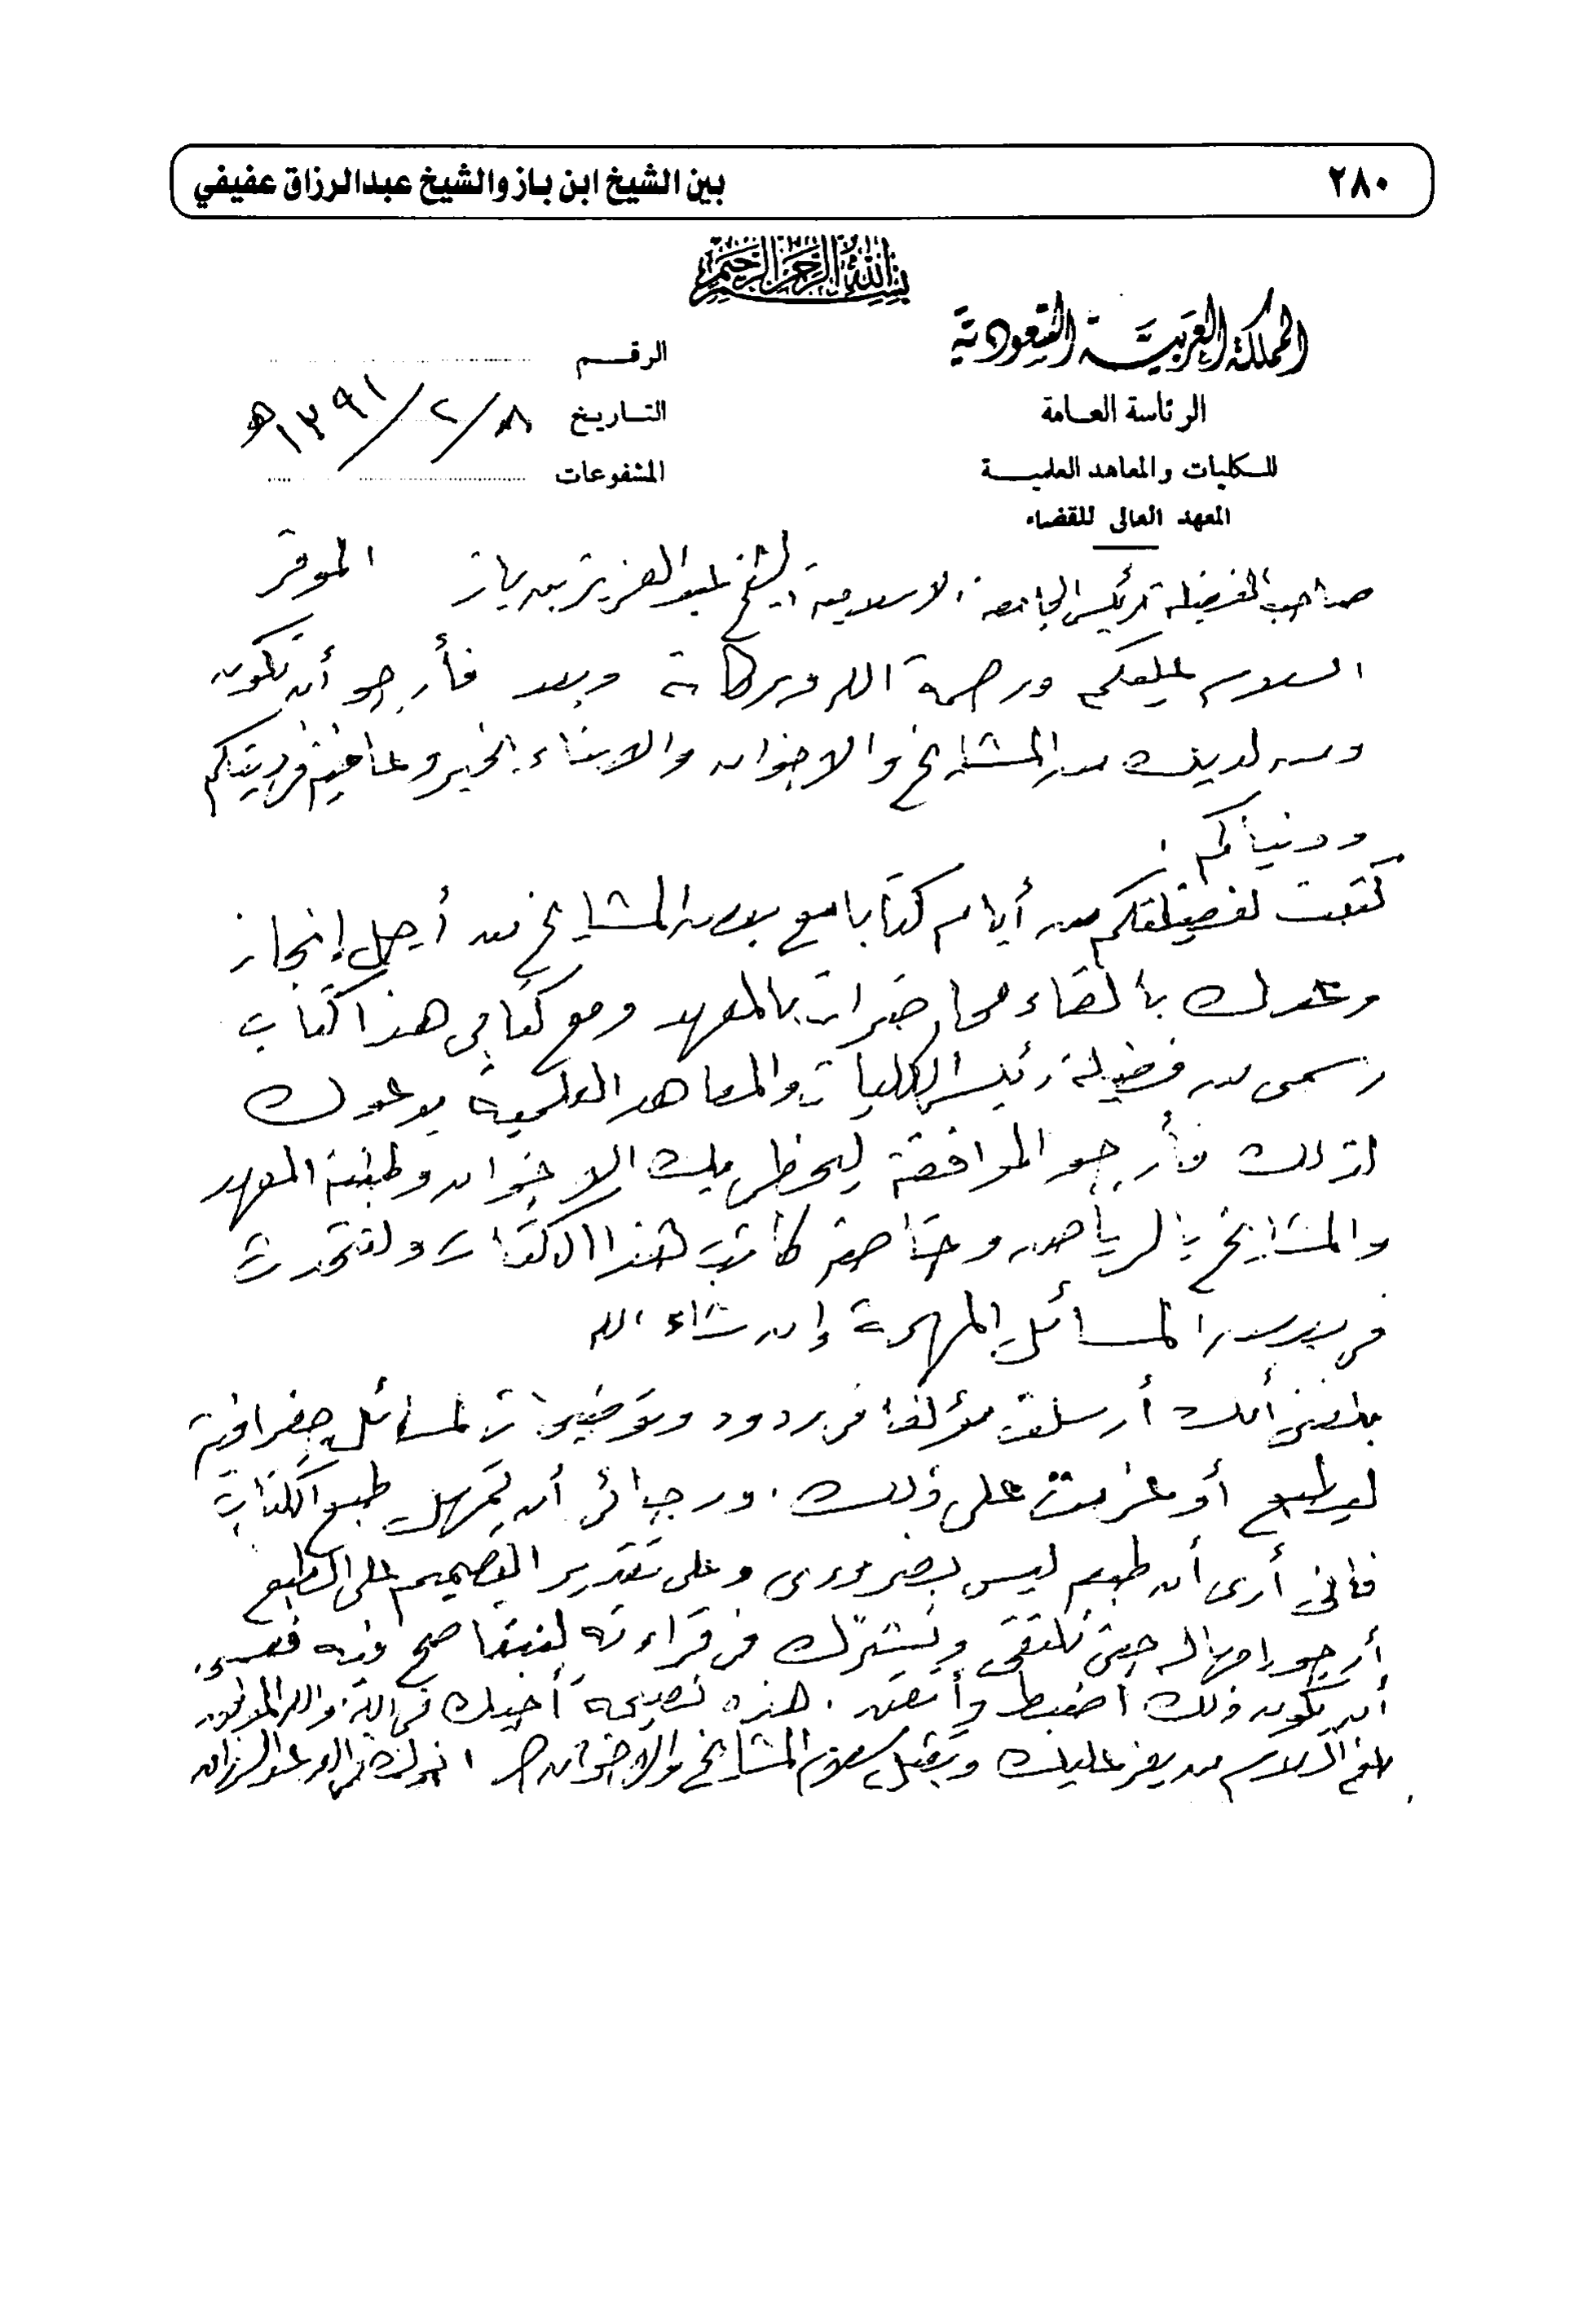 ٢٨٠
بين الشيخ ابن باز والشيخ عبدالرزاق عفيفي
بسم الله الرحمن الرحيم
المملكة العربية السعودية
الرئاسة العامة
للكليات والمعاهد العلمية
المعهد العالى للقضاء
الرقم
التاريخ ٨/٢/١٣٩١ هـ
المشفوعات
صاحب الفضيلة رئيس الجامعة الاسلامية الشيخ عبد العزيز بن باز الموقر
السلام عليكم ورحمة الله وبركاته وبعد فأرجو أن تكون
ومن لديك من المشايخ والاخوان والابناء بخير وعافية في دينكم
ودنياكم .
كتبت لفضيلتكم من أيام كتابا مع بعض المشايخ من أجل إنجاز
وعدك بالقاء محاضرات بالمعهد ومع كتابى هذا كتاب
رسمى من فضيلة رئيس الكليات والمعاهد العلمية يدعوك
لذلك فأرجو الموافقة ليحظى بك الاخوان وطلبة المعهد
والمشايخ بالرياض وخاصة كاتب هذا الكتاب ولنتحدث
فى بعض المسائل المهمة إن شاء الله
بلغنى أنك أرسلت مؤلفا فى ردود وتوضيحات لمسائل جغرافية
ليطبع أو عزمت على ذلك . ورجائى أن تمهل طبع الكتاب
فانى أرى أن طبعه ليس بضرورى وعلى تقدير التصميم على الطبع
أرجو امهاله حتى نلتقى ونشترك فى قراءته لنتناصح فيه فعسى
أن يكون ذلك أضبط وأتقن . هذه نصيحة أخيك فى الله والله الموفق
بلغ السلام من يعز عليك وتقبل سلام المشايخ والاخوان أخوك فى الله عبد الرزاق